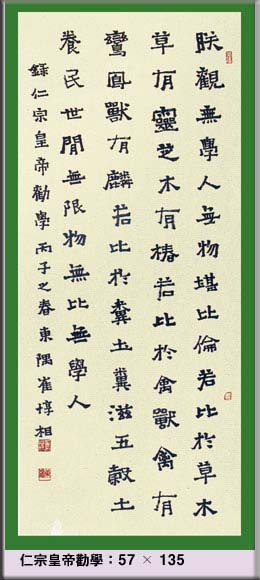 朕觀無學人無物堪比倫若比於草木
草有靈芝木有椿若比於禽獸禽有
鸞鳳獸有麟若比於糞土糞滋五穀土
養民世閒無限物無比無學人
錄仁宗皇帝勸學 丙子之春 東隅崔惇相
仁宗皇帝勸學：57 × 135